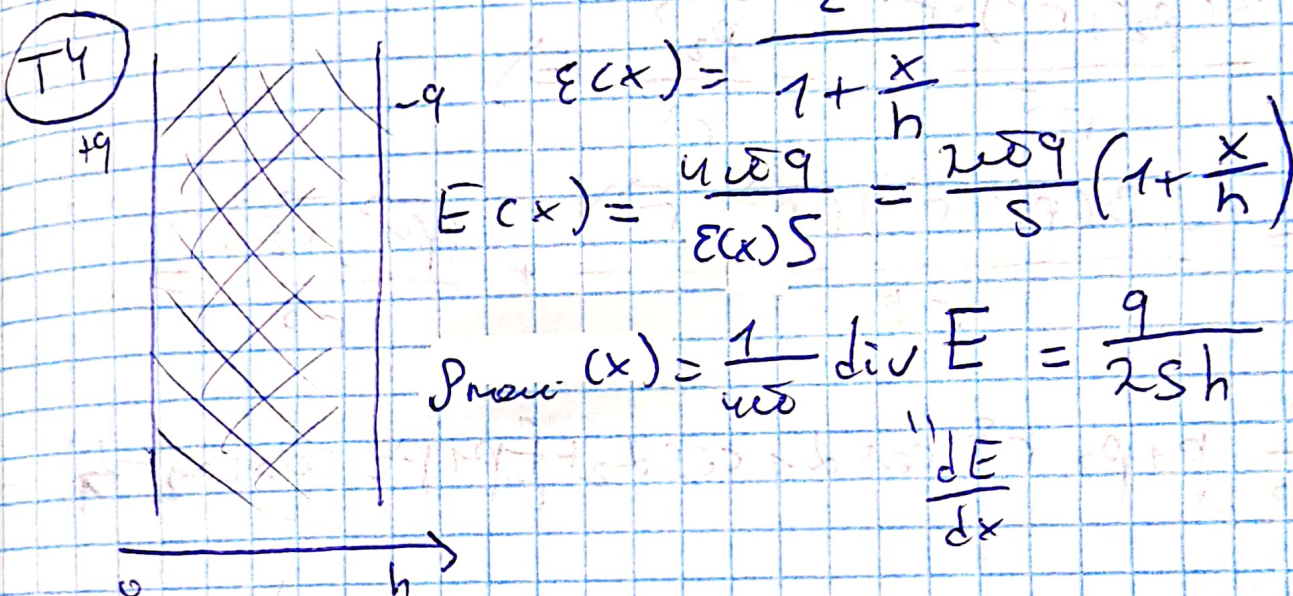 T4
+q
-q
ε(x) = 2 / (1 + x/h)
E(x) = 4πq / (ε(x)S) = 2πq/S (1 + x/h)
(x) = 1/4π div E = q / 2Sh
" dE/dx
0 h